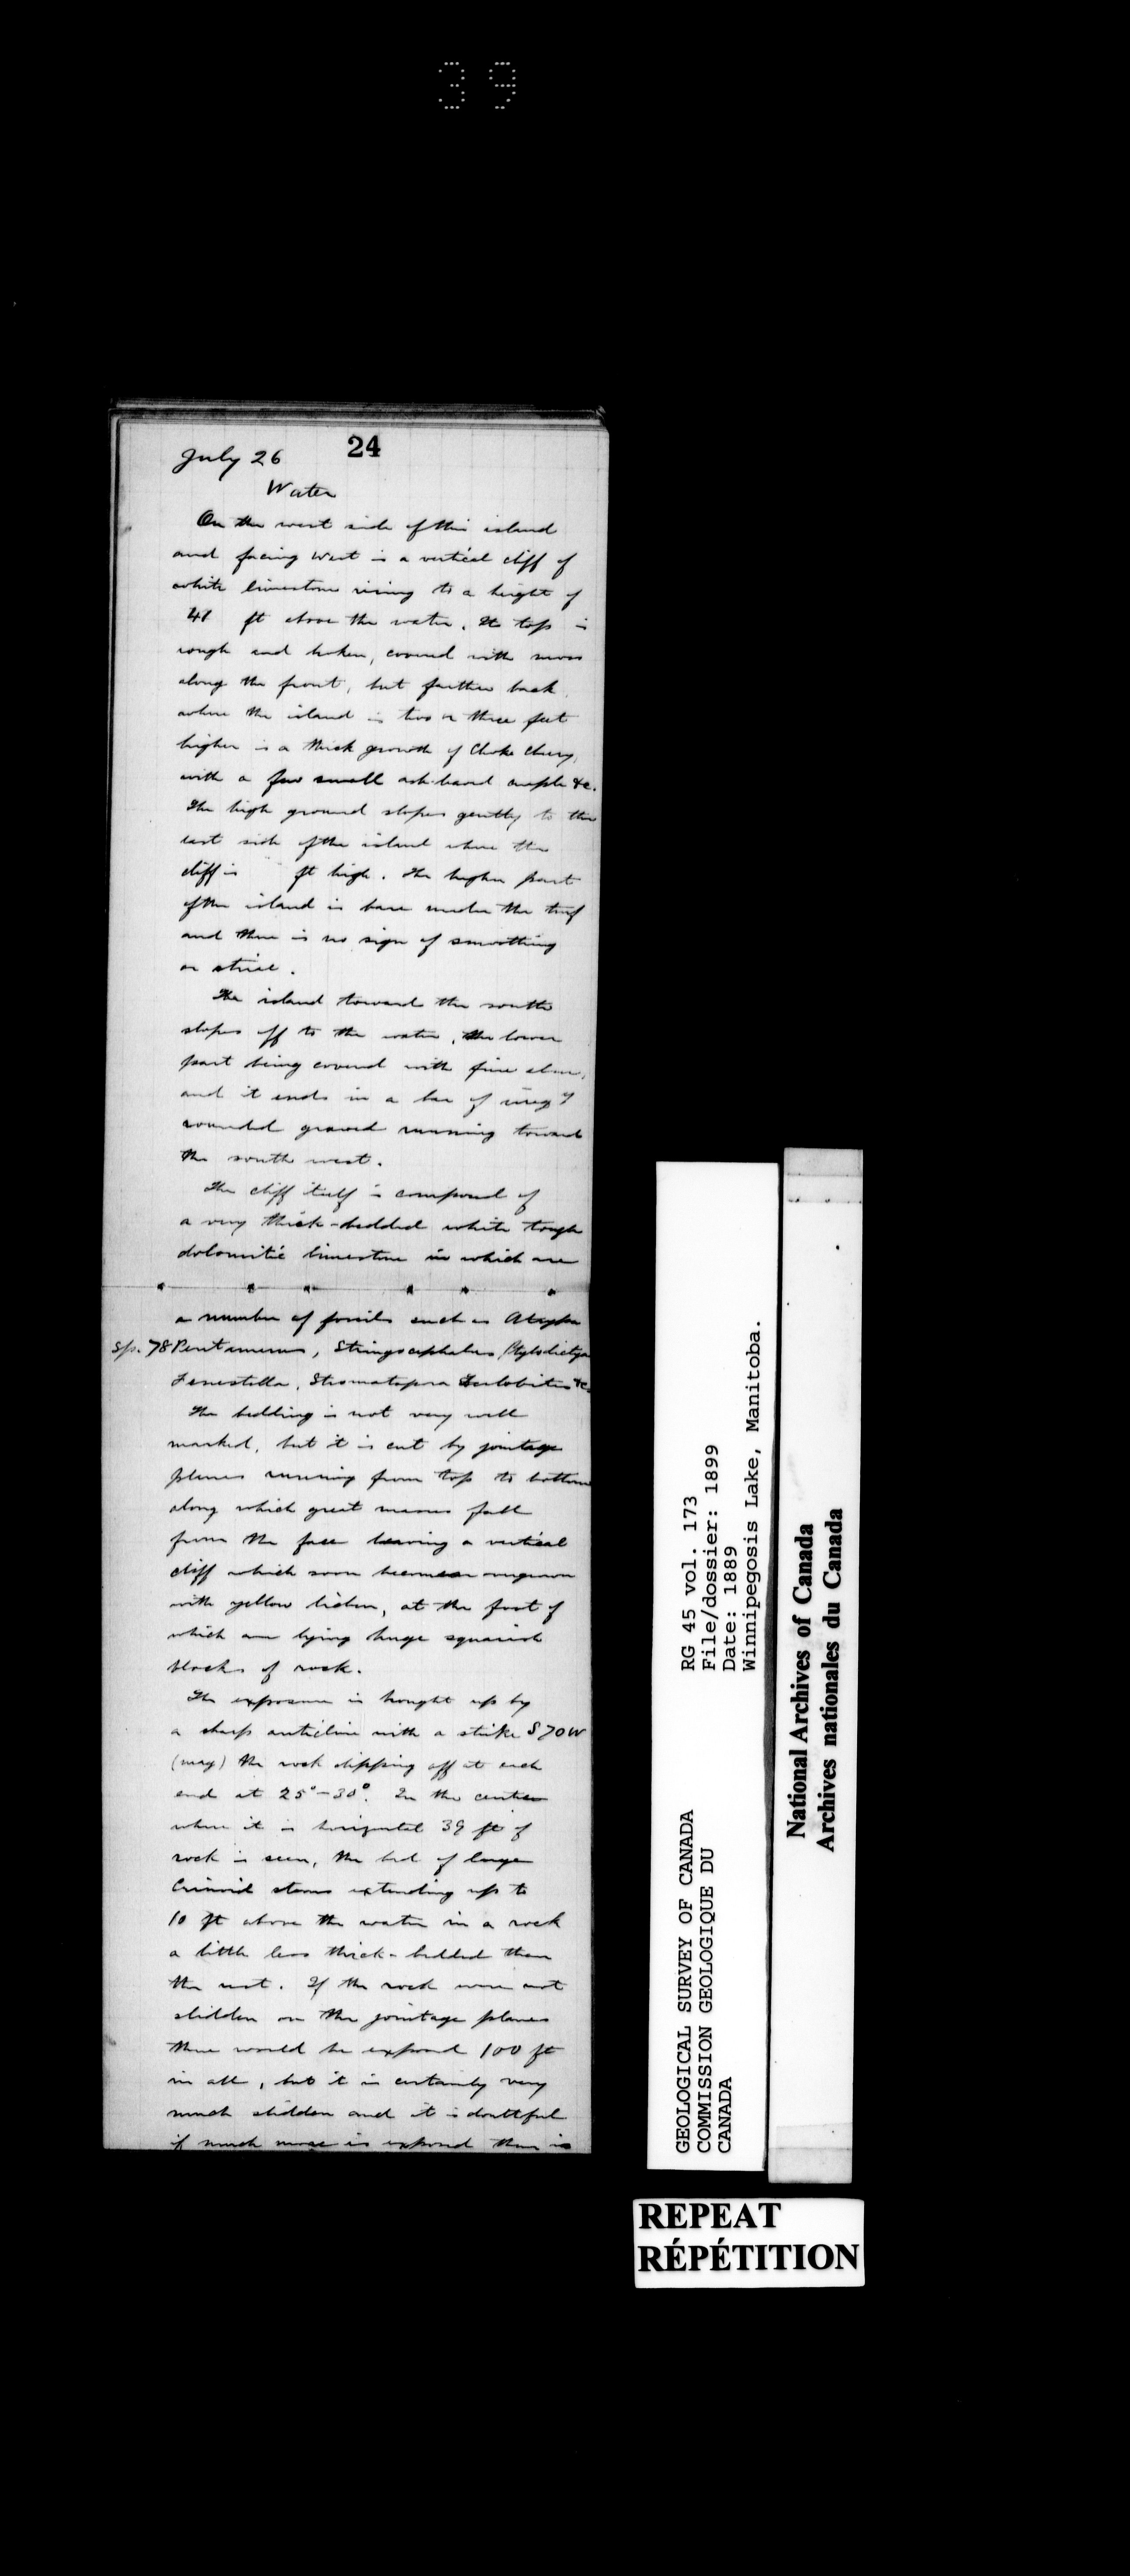 39
24
July 26
Water
On the west side of this island
and facing West is a vertical cliff of
white limestone rising to a height of
41 ft above the water. Its top is
rough and broken, covered with moss
along the front, but farther back
where the island is two or three feet
higher is a thick growth of Choke Cherry,
with a few small ash-leaved maple &c.
The high ground slopes gently to the
east side of the island where the
cliff is ft high. The higher part
of the island is bare under the turf
and there is no sign of smoothing
or striae.
The island toward the south
slopes off to the water, the lower
part being covered with fine elm,
and it ends in a bar of
rounded gravel running toward
the south west.
The cliff itself is composed of
a very thick-bedded white tough
dolomitic limestone in which are
a number of fossils such as Atrypa
Sp. 78 Pentamerus, Stringocephalus Ptylodictya
Fenestella, Stromatopora &c
The bedding is not very well
marked, but it is cut by jointage
planes running from top to bottom
along which great masses fall
from the face leaving a vertical
cliff which soon becomes overgrown
with yellow lichen, at the foot of
which are lying huge squarish
blocks of rock.
The exposure is brought up by
a sharp anticline with a strike S 70 W
(mag) the rock dipping off at each
end at 25°-30°. In the centre
where it is horizontal 39 ft of
rock is seen, the bed of large
Crinoid stems extending up to
10 ft above the water in a rock
a little less thick-bedded than
the rest. If the rock were not
slidden on the jointage planes
there would be exposed 100 ft
in all, but it is certainly very
much slidden and it is doubtful
if much more is exposed than is
GEOLOGICAL SURVEY OF CANADA
COMMISSION GEOLOGIQUE DU
CANADA
RG 45 vol. 173
File/dossier: 1899
Date: 1889
Winnipegosis Lake, Manitoba.
National Archives of Canada
Archives nationales du Canada
REPEAT
RÉPÉTITION